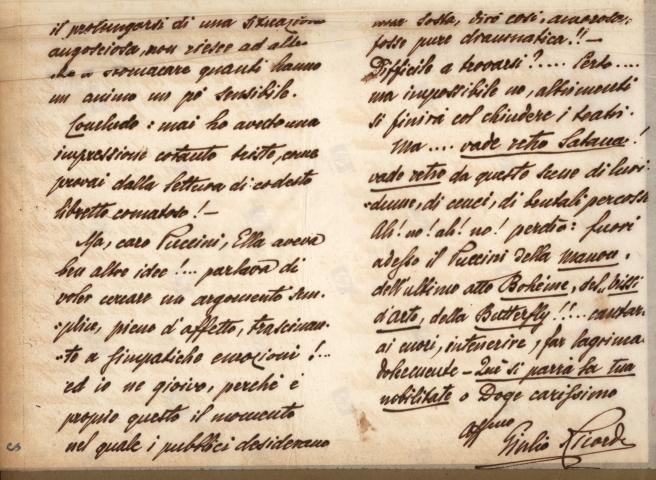 il prolungarsi di una situazione
angosciosa, non riesce ad alle-
a stomacare quanti hanno
un animo un po' sensibile.
Concludo: mai ho avuto una
impressione cotanto triste, come
provai dalla lettura di codesto
libretto comatoso! —
Ma, caro Puccini, Ella aveva
ben altre idee!... parlava di
voler cercare un argomento sem-
-plice, pieno d'affetto, trascinan-
-te a simpatiche emozioni!...
ed io ne gioivo, perchè è
proprio questo il momento
nel quale i pubblici desiderano
sosta, dirò così, amorosa,
fosse pure drammatica!! —
Difficile a trovarsi?.... Certo....
ma impossibile no, altrimenti
si finirà col chiudere i teatri.
Ma.... vade retro Satana!
vade retro da questo seno di luri-
-dume, di cenci, di brutali percosse
Ah! no! ah! no! perdio: fuori
adesso il Puccini della Manon,
dell'ultimo atto Bohème, del Vissi
d'arte, della Butterfly!!... cantar
ai cuori, intenerire, far lagrimar
dolcemente — Qui si parrà la tua
nobilitate o Doge carissimo
Affmo
Giulio Ricordi